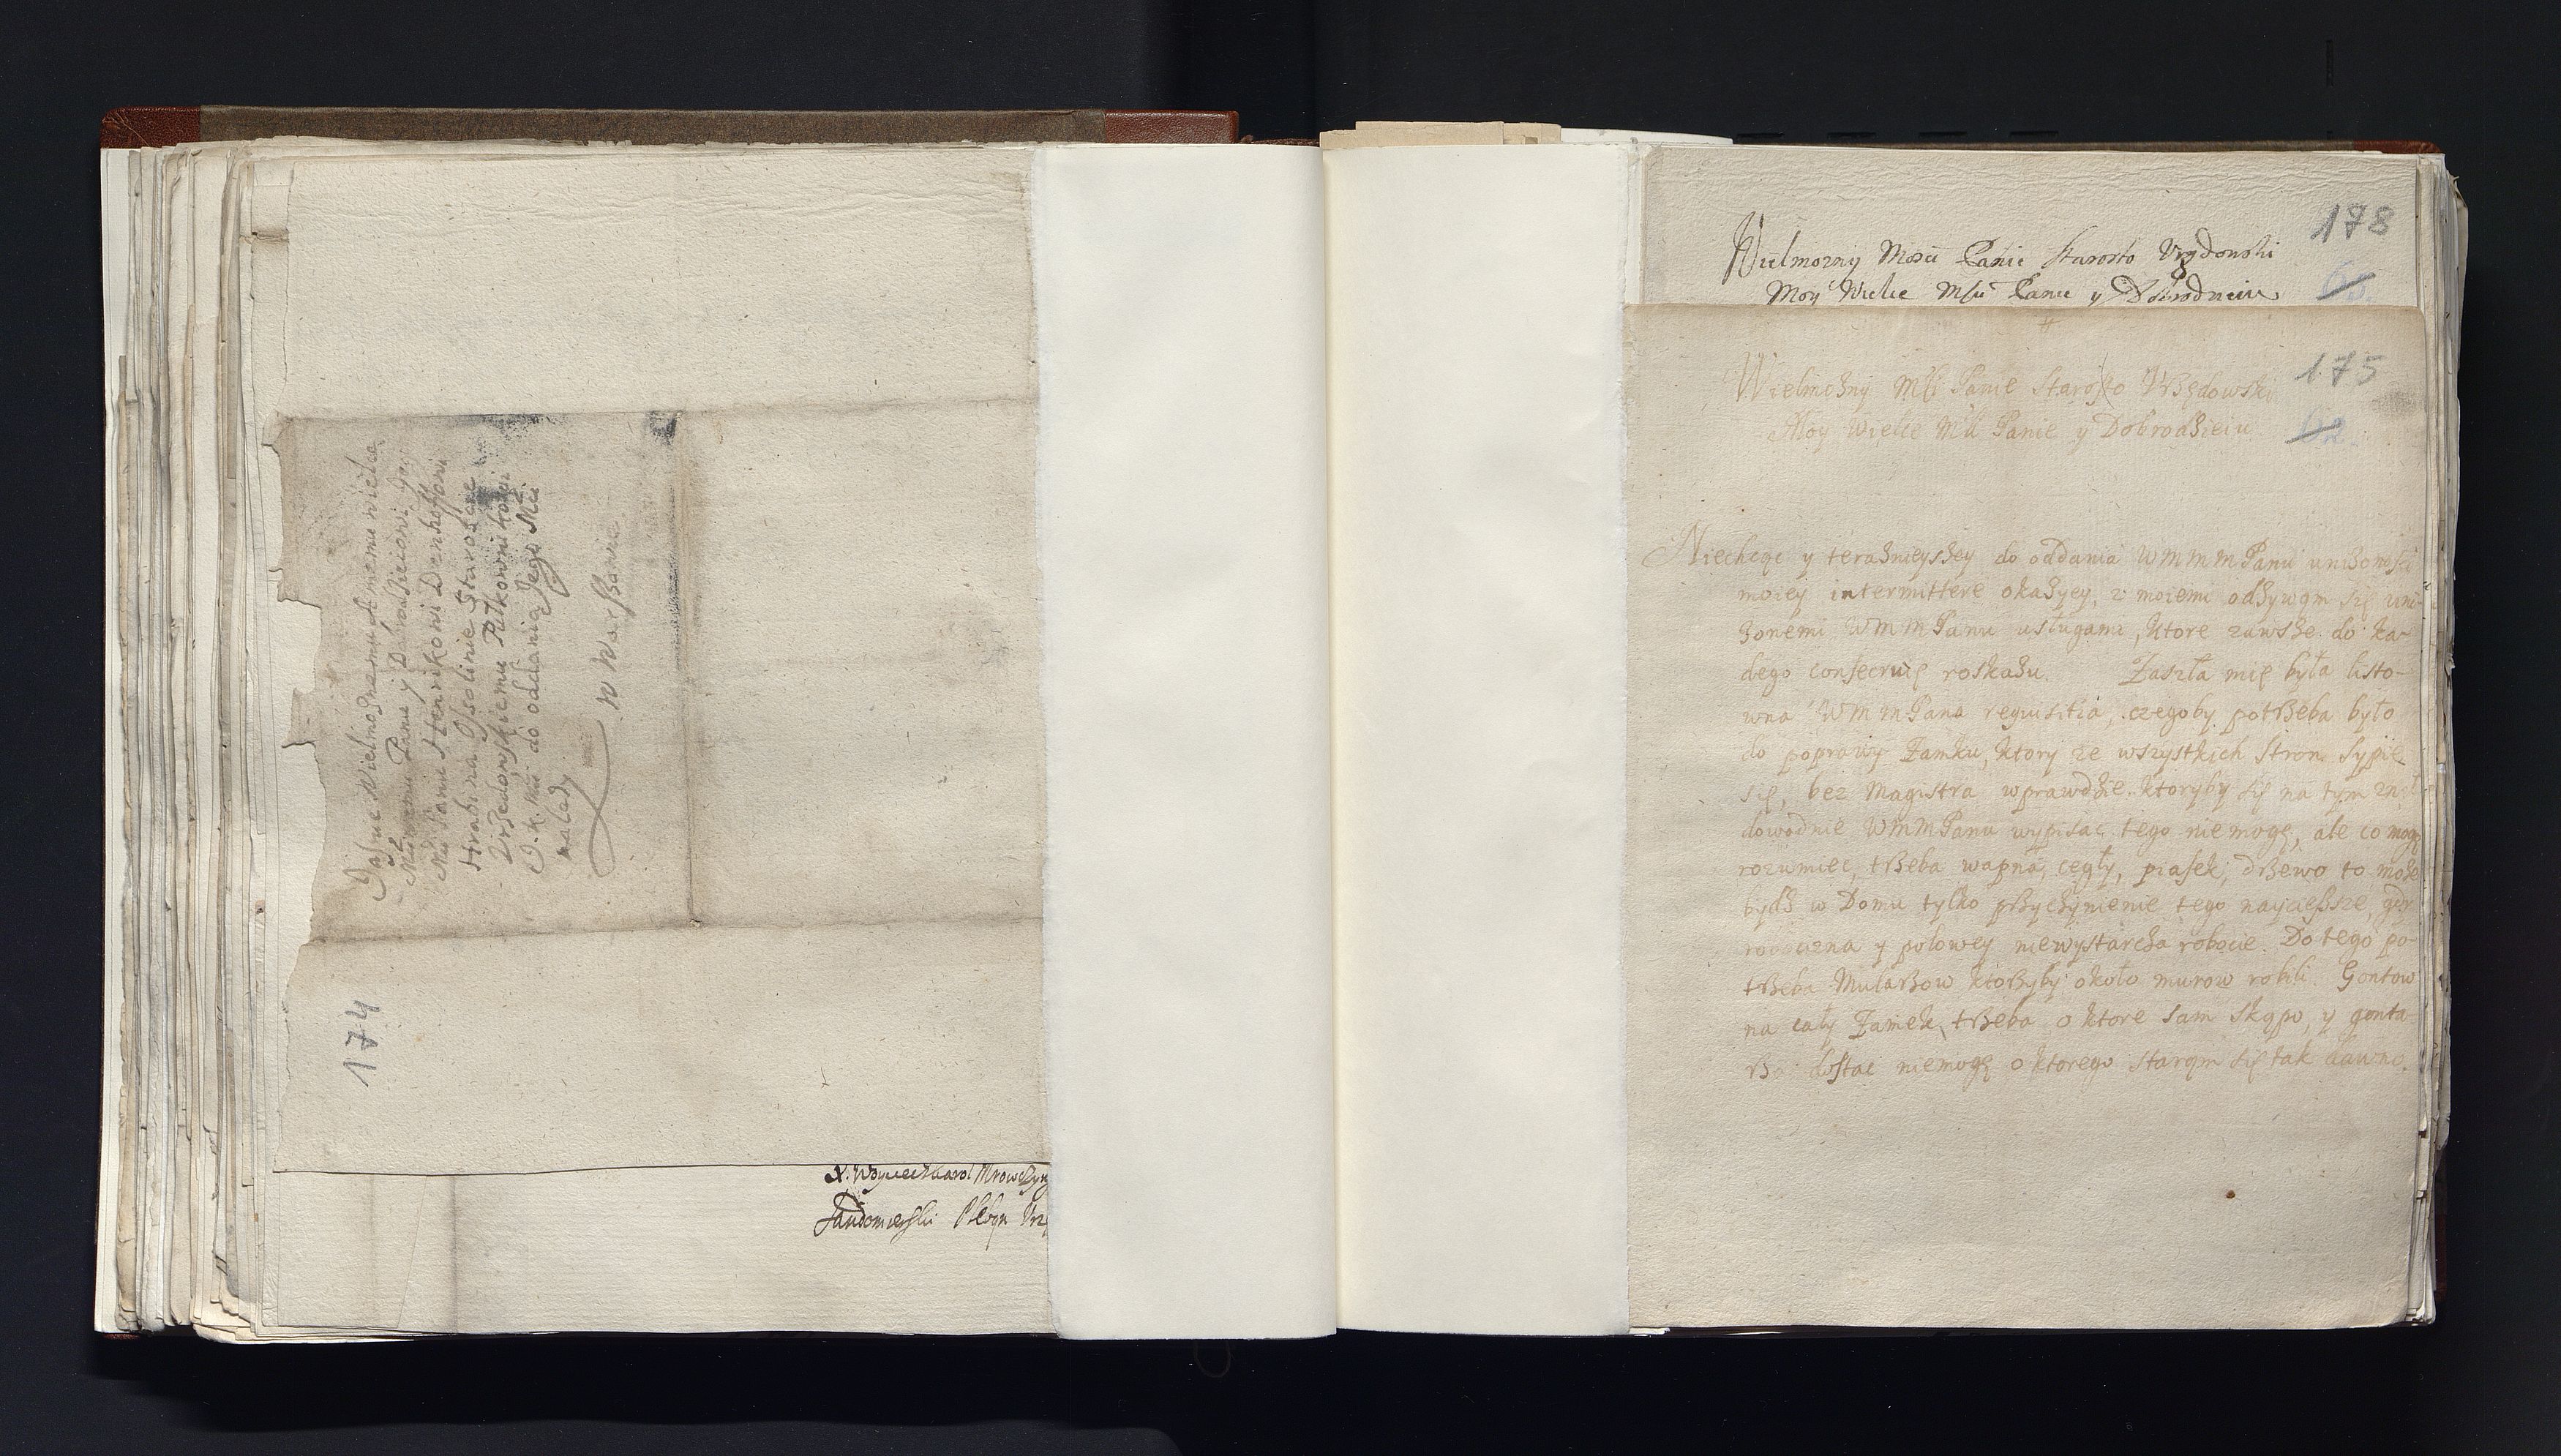 Jasnie Wielmożnemu A memu wielce
Panu y Dobrodzieiowi Je
Mci Panu Henrikowi Denhoffowi
Hrabi na Ossolinie Staroscie
Vrzędowskiemu Pułkownikowi
J. K. Mci do oddania Jego Mci
należy
w Warszawie
174
X. Woyciech Karol
Sandomierski Pleban Vrz
178
Wielmozny Mosci Panie Starosto Vrzędowski
Moy Wielce Msci Panie y Dobrodzieiu
175
Wielmożny Msci Panie Starosto Vrzędowski
Moy Wielce Msci Panie y Dobrodzieiu
Niechcąc y teraznieyszey do oddania WMMMPanu unizonosci
moiey intermittere okazyey, z moiemi odzywam się uni-
zonemi WMMPanu usługami, ktore zawsze do ka-
dego consecruię roskazu. Zaszła mię była listo-
wna WMMPana requisitia, czegoby potrzeba było
do poprawy Zamku, ktory ze wszystkich stron sypie
się, bez Magistra wprawdzie ktoryby się na tym zn
dowodnie WMMPanu wypisac tego niemogę, ale co mogę
rozumiec, trzeba wapna, cegły, piasek, drzewo to może
bydz w Domu tylko przyczynienie tego naycięższe, gdy
robocizna y polowey niewystarcza robocie. Do tego po-
trzeba Mularzow ktorzyby około murow robili. Gontow
na cały Zamek trzeba o ktore sam skąpo, y gonta
rza dostac niemogę o ktorego staram się tak dawno.